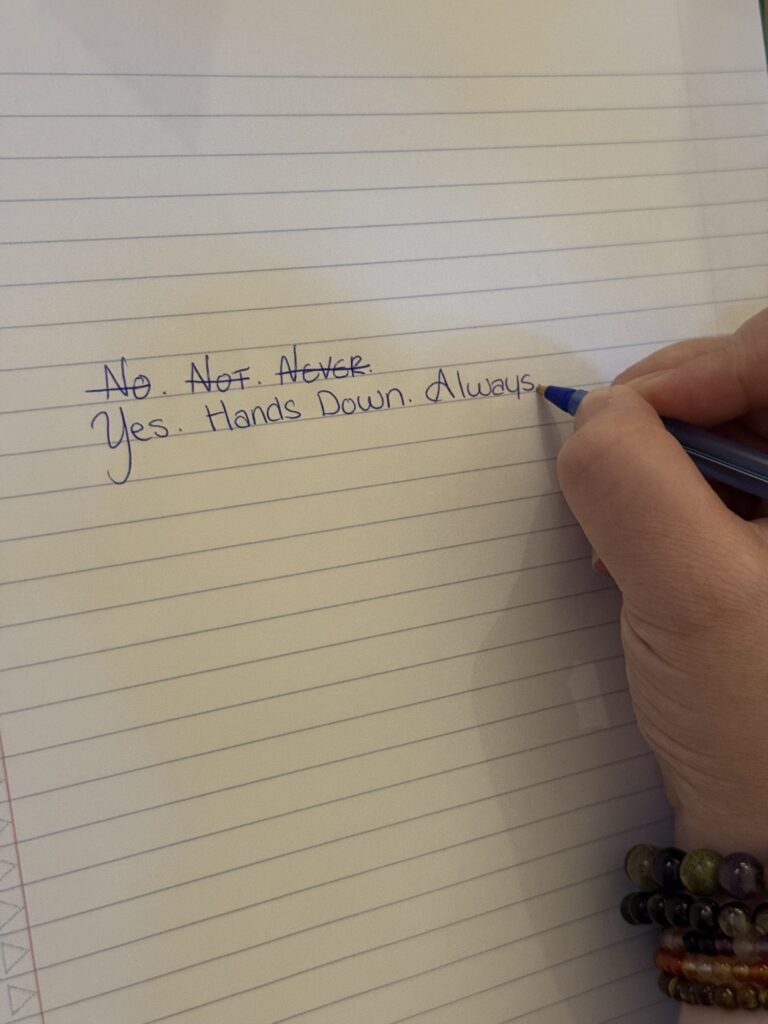 No. Not. Never.
Yes. Hands Down. Always.